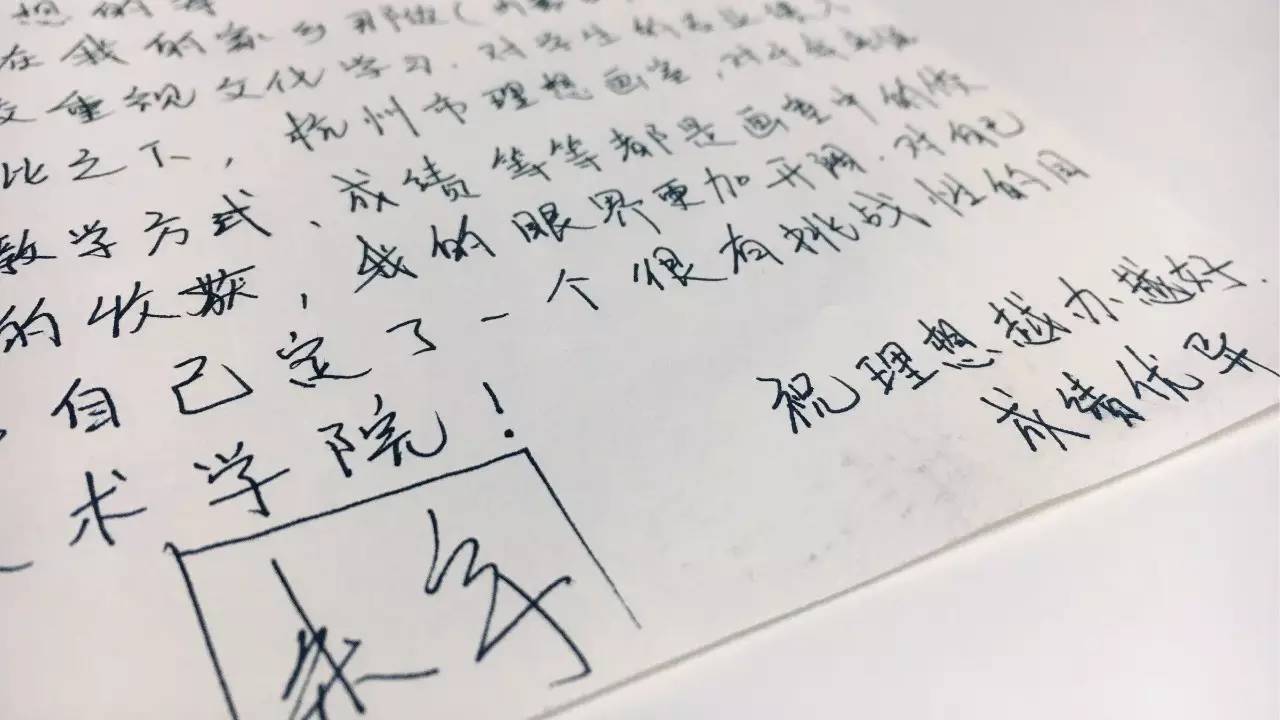 想的
在我的家乡那边(内蒙
重视文化学习.对学生的专业
比之下,杭州市理想画室,对于
教学方式、成绩等等都是画室中的
的收获,我的眼界更加开阔.对自己
自己定了一个很有挑战性的目
术学院!
祝理想越办越好.
成绩优异